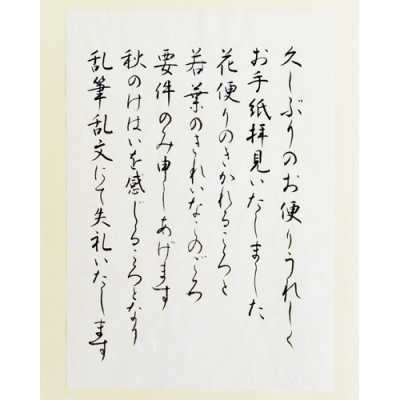 久しぶりのお便りうれしく
お手紙拝見いたしました
花便りのきかれるころと
若葉のきれいなこのごろ
要件のみ申しあげます
秋のけはいを感じるころとなり
乱筆乱文にて失礼いたします